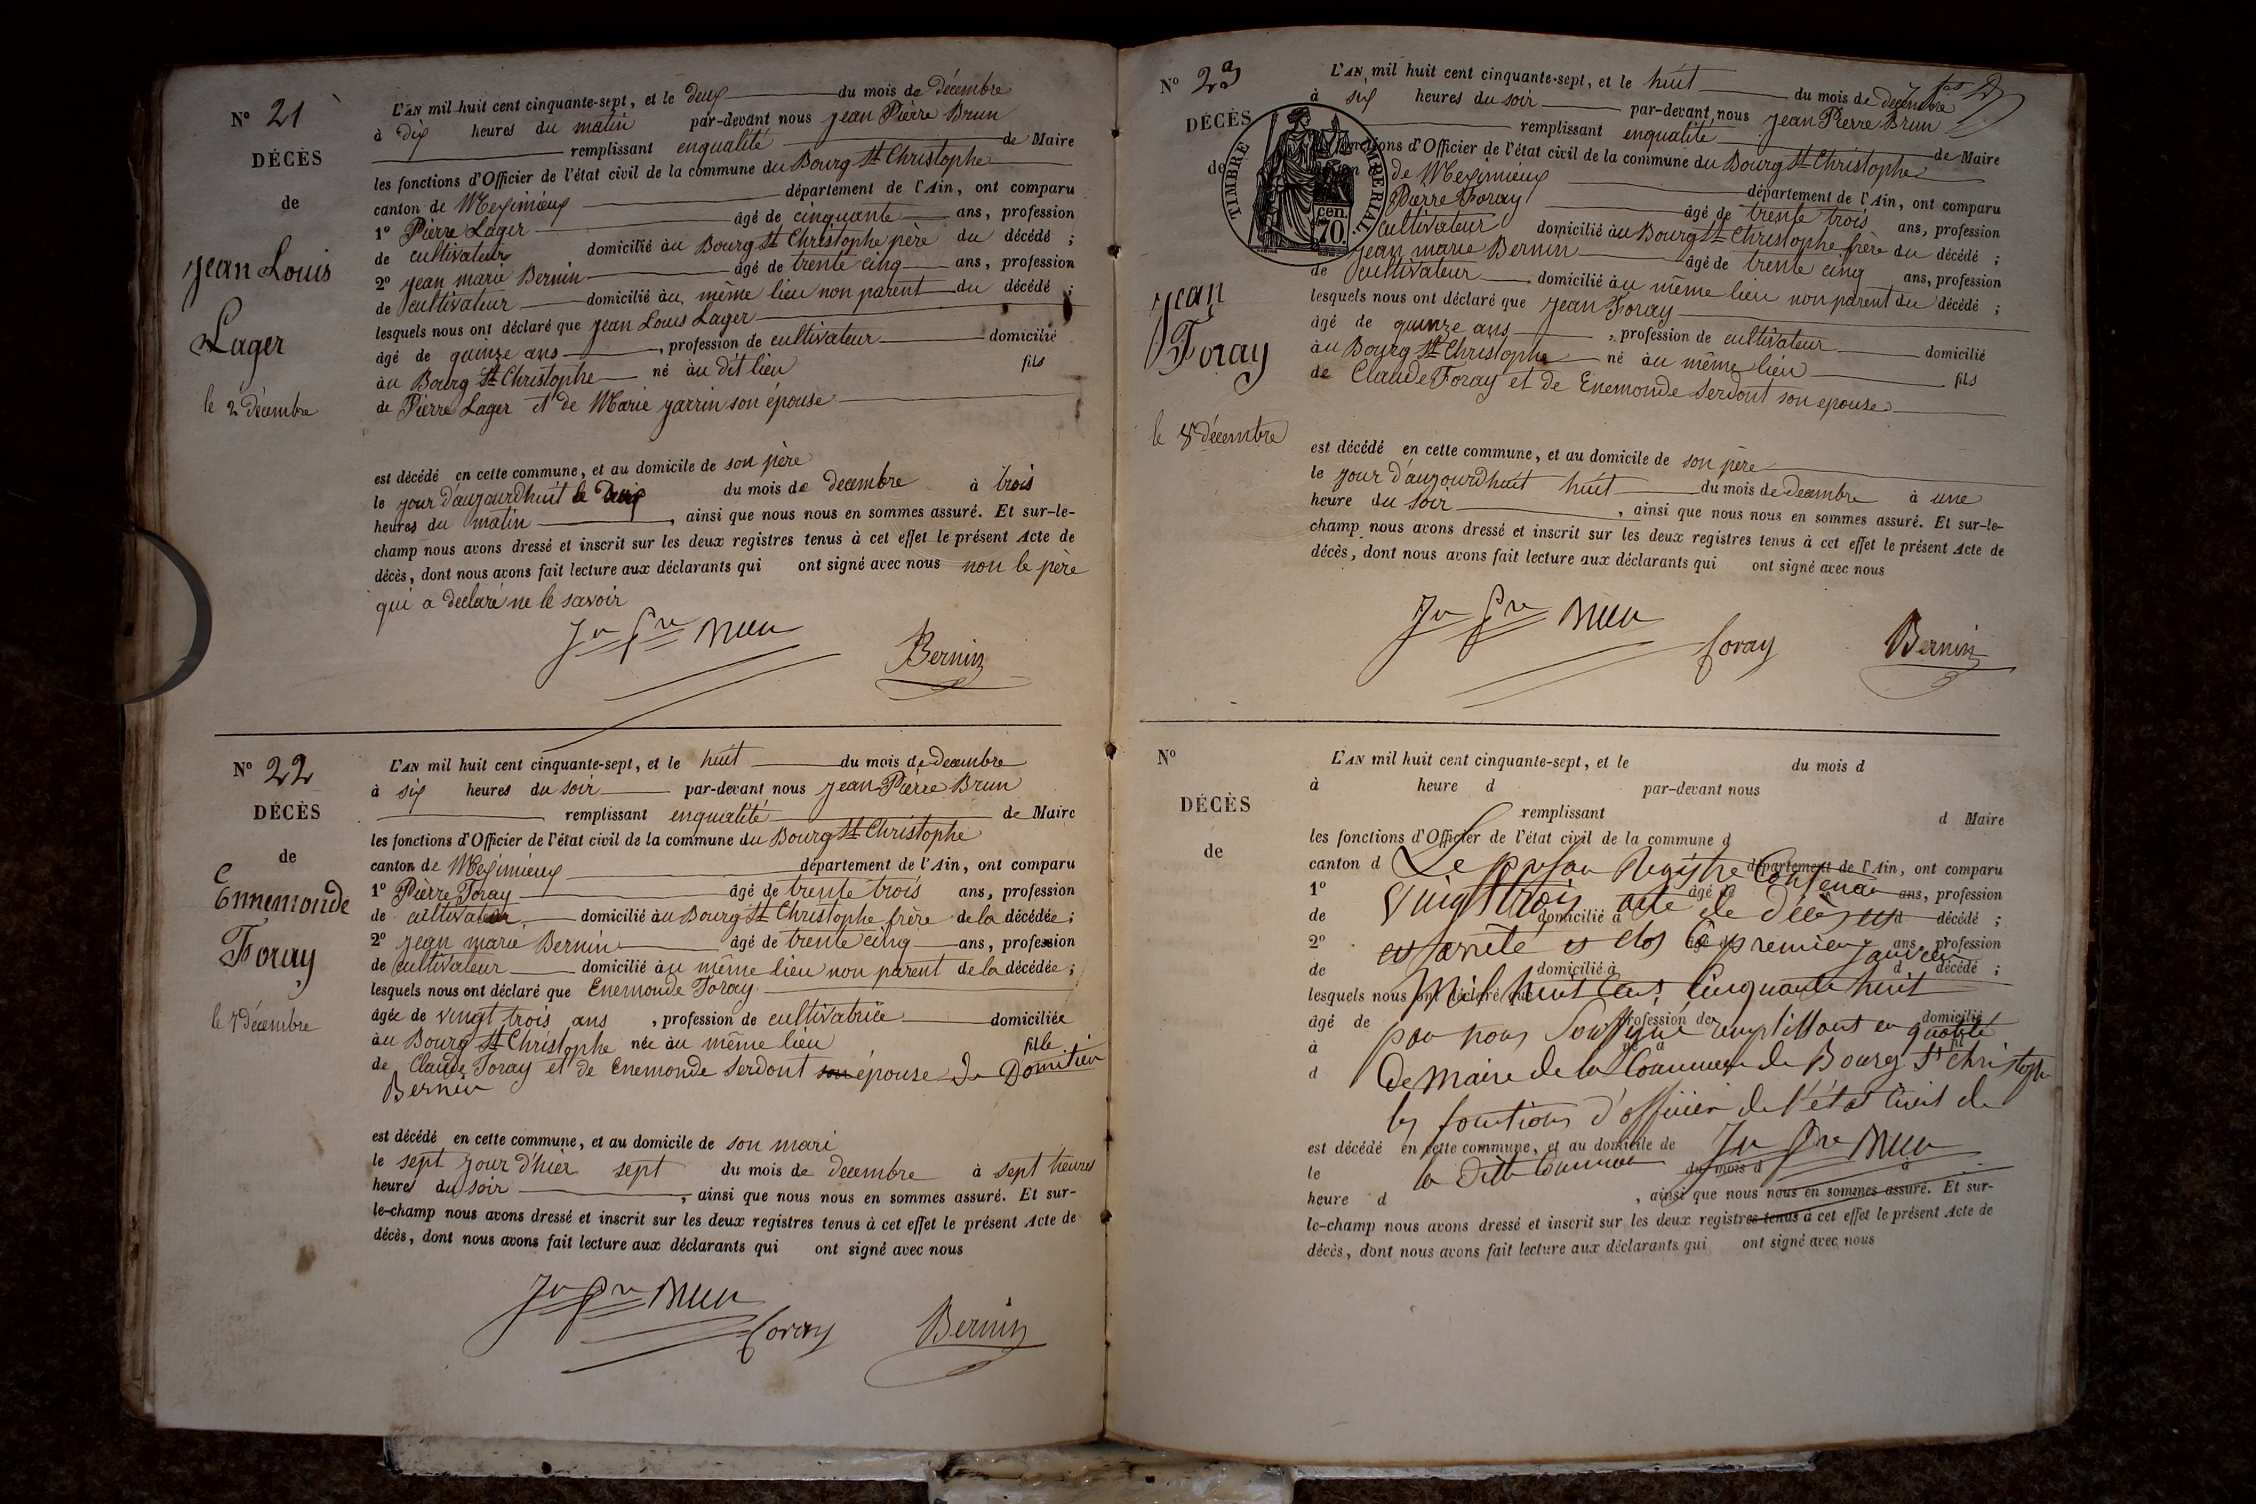 N° 21
DÉCÈS
de
jean Louis
Lager
le 2 décembre
L'AN mil huit cent cinquante-sept, et le deux du mois de décembre
à dix heures du matin par-devant nous jean Pierre Brun
remplissant enqualité de Maire
les fonctions d'Officier de l'état civil de la commune du Bourg St Christophe
canton de Meximieux département de l'Ain, ont comparu
1° Pierre Lager âgé de cinquante ans, profession
de cultivateur domicilié au Bourg St Christophe père du décédé ;
2° jean marie Bernin âgé de trente cinq ans, profession
de cultivateur domicilié au même lieu non parent du décédé ;
lesquels nous ont déclaré que jean Louis Lager
âgé de quinze ans, profession de cultivateur domicilié
au Bourg St Christophe né au dit lieu fils
de Pierre Lager et de Marie jarrin son épouse
est décédé en cette commune, et au domicile de son père
le jour d'aujourdhuit le deux du mois de decembre à trois
heures du matin, ainsi que nous nous en sommes assuré. Et sur-le-
champ nous avons dressé et inscrit sur les deux registres tenus à cet effet le présent Acte de
décès, dont nous avons fait lecture aux déclarants qui ont signé avec nous non le père
qui a declaré ne le savoir
Jn Pre Brun
Bernin
N° 22
DÉCÈS
de
Ennemonde
Foray
le 7 décembre
L'AN mil huit cent cinquante-sept, et le huit du mois de decembre
à six heures du soir par-devant nous jean Pierre Brun
remplissant enqualité de Maire
les fonctions d'Officier de l'état civil de la commune du Bourg St Christophe
canton de Meximieux département de l'Ain, ont comparu
1° Pierre Foray âgé de trente trois ans, profession
de cultivateur domicilié au Bourg St Christophe frère de la décédée ;
2° jean marie Bernin âgé de trente cinq ans, profession
de cultivateur domicilié au même lieu non parent de la décédée ;
lesquels nous ont déclaré que Enemonde Foray
âgée de vingt trois ans, profession de cultivatrice domiciliée
au Bourg St Christophe née au même lieu fille
de Claude Foray et de Enemonde Serdont son épouse de Domitien
Bernin
est décédé en cette commune, et au domicile de son mari
le sept jour d'hier sept du mois de decembre à sept heures
heures du soir, ainsi que nous nous en sommes assuré. Et sur-
le-champ nous avons dressé et inscrit sur les deux registres tenus à cet effet le présent Acte de
décès, dont nous avons fait lecture aux déclarants qui ont signé avec nous
Jn Pre Brun
Foray
Bernin
N° 23
DÉCÈS
de
TIMBRE IMPERIAL
70 cen.
jean
Foray
le 8 décembre
L'AN mil huit cent cinquante-sept, et le huit du mois de decembre
à six heures du soir par-devant nous jean Pierre Brun
remplissant enqualité de Maire
fonctions d'Officier de l'état civil de la commune du Bourg St Christophe
de Meximieux département de l'Ain, ont comparu
Pierre Foray âgé de trente trois ans, profession
cultivateur domicilié au Bourg St Christophe frère du décédé ;
jean marie Bernin âgé de trente cinq ans, profession
de cultivateur domicilié au même lieu non parent du décédé ;
lesquels nous ont déclaré que jean Foray
âgé de quinze ans, profession de cultivateur domicilié
au Bourg St Christophe né au même lieu fils
de Claude Foray et de Enemonde Serdont son epouse
est décédé en cette commune, et au domicile de son père
le jour d'aujourdhuit huit du mois de decembre à une
heure du soir, ainsi que nous nous en sommes assuré. Et sur-le-
champ nous avons dressé et inscrit sur les deux registres tenus à cet effet le présent Acte de
décès, dont nous avons fait lecture aux déclarants qui ont signé avec nous
Jn Pre Brun
Foray
Bernin
N°
DÉCÈS
de
L'AN mil huit cent cinquante-sept, et le du mois d
à heure d par-devant nous
remplissant d Maire
les fonctions d'Officier de l'état civil de la commune d
canton d département de l'Ain, ont comparu
Le présent Registre Contenant
1° âgé de ans, profession
vingt trois acte de décès
de domicilié à d décédé ;
2° ans, profession
est arrêté et clos le premier janvier
de domicilié à d décédé ;
lesquels nous ont déclaré que
Mil huit Cent Cinquante huit
âgé de profession de domicilié
par nous soussigné remplissant en qualité
à né à fil
d
de Maire de la Commune de Bourg St Christophe
les fonctions d'officier de l'état Civil de
est décédé en cette commune, et au domicile de
la dite Commune
Jn Pre Brun
le du mois d à
heure d, ainsi que nous nous en sommes assuré. Et sur-
le-champ nous avons dressé et inscrit sur les deux registres tenus à cet effet le présent Acte de
décès, dont nous avons fait lecture aux déclarants qui ont signé avec nous